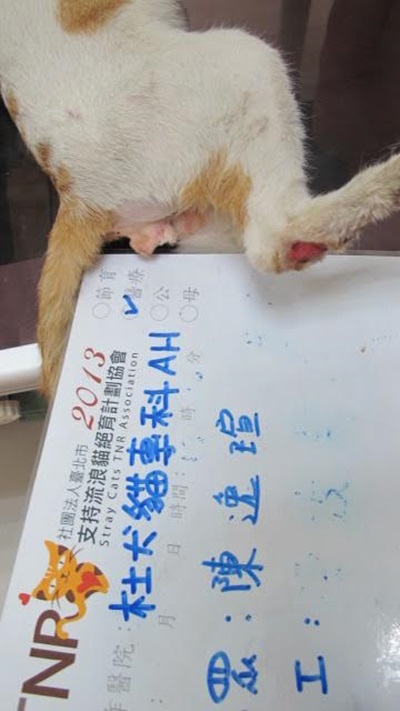 TNR
社團法人臺北市 2013 節育 醫療 公 母
支持流浪貓絕育計劃協會
Stray Cats TNR Association
作醫院：杜犬貓專科AH
月 日 時間： 時 分
：陳逸瑄
工：